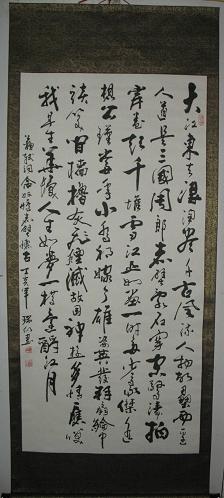 大江東去浪淘盡千古風流人物故壘西邊
人道是三國周郎赤壁亂石穿空驚濤拍
岸卷起千堆雪江山如畫一時多少豪傑遙
想公瑾當年小喬初嫁了雄姿英發羽扇綸巾
談笑間檣櫓灰飛煙滅故國神遊多情應笑
我早生華髮人生如夢一樽還酹江月
蘇軾詞念奴嬌赤壁懷古 丁亥年 書